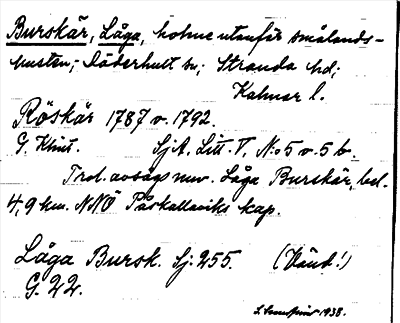 Burskär, Låga, holme utanför smålands-
kusten; Döderhult sn; Stranda hd;
Kalmar l.
Röskär 1787 o. 1792.
G. Klint. SjA. Litt. V, No 5 o. 5 b.
Trol. avsågs nuv. Låga Burskär, bel.
4,9 km. NNÖ Påskallaviks kap.
Låga Bursk. Sj: 255. (Vänd!)
G. 22.
1938.